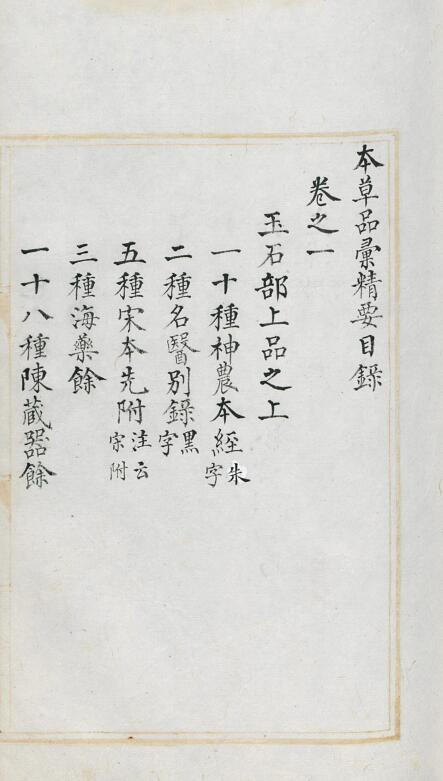 本草品彙精要目錄
卷之一
玉石部上品之上
一十種神農本經朱字
二種名醫別錄黑字
五種宋本先附注云宗附
三種海藥餘
一十八種陳藏器餘